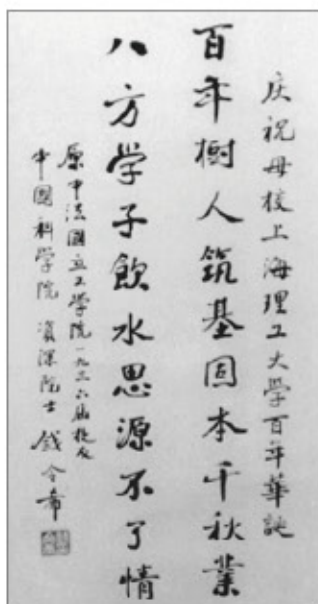 庆祝母校上海理工大学百年華誕
百年樹人筑基固本千秋業
八方学子飲水思源不了情
原中法國立工学院一九三六届校友
中國科学院資深院士錢令希